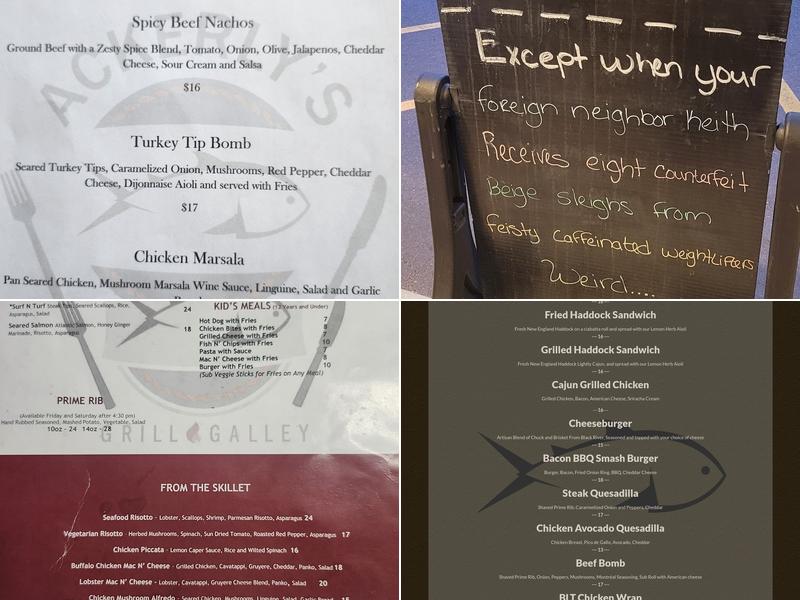 ACKERLY'S
Spicy Beef Nachos
Ground Beef with a Zesty Spice Blend, Tomato, Onion, Olive, Jalapenos, Cheddar
Cheese, Sour Cream and Salsa
$16
Turkey Tip Bomb
Seared Turkey Tips, Caramelized Onion, Mushrooms, Red Pepper, Cheddar
Cheese, Dijonnaise Aioli and served with Fries
$17
Chicken Marsala
Pan Seared Chicken, Mushroom Marsala Wine Sauce, Linguine, Salad and Garlic
Except when your
foreign neighbor Keith
Receives eight counterfeit
Beige sleighs from
feisty caffeinated weightlifters
Weird....
*Surf N Turf Steak Tips, Seared Scallops, Rice,
Asparagus, Salad
24
Seared Salmon Atlantic Salmon, Honey Ginger
Marinade, Risotto, Asparagus
18
KID'S MEALS (12 Years and Under)
Hot Dog with Fries 7
Chicken Bites with Fries 8
Grilled Cheese with Fries 7
Fish N' Chips with Fries 10
Pasta with Sauce 7
Mac N' Cheese with Fries 8
Burger with Fries 10
(Sub Veggie Sticks for Fries on Any Meal)
PRIME RIB
(Available Friday and Saturday after 4:30 pm)
Hand Rubbed Seasoned, Mashed Potato, Vegetable, Salad
10oz - 24 14oz - 28
GRILL GALLEY
FROM THE SKILLET
Seafood Risotto - Lobster, Scallops, Shrimp, Parmesan Risotto, Asparagus 24
Vegetarian Risotto - Herbed Mushrooms, Spinach, Sun Dried Tomato, Roasted Red Pepper, Asparagus 17
Chicken Piccata - Lemon Caper Sauce, Rice and Wilted Spinach 16
Buffalo Chicken Mac N' Cheese - Grilled Chicken, Cavatappi, Gruyere, Cheddar, Panko, Salad 18
Lobster Mac N' Cheese - Lobster, Cavatappi, Gruyere Cheese Blend, Panko, Salad 20
Chicken Mushroom Alfredo - Seared Chicken, Mushrooms, Linguine, Salad, Garlic
Fried Haddock Sandwich
Fresh New England Haddock on a ciabatta roll and spread with our Lemon Herb Aioli
— 16 —
Grilled Haddock Sandwich
Fresh New England Haddock Lightly Cajun, and spread with our Lemon Herb Aioli
— 16 —
Cajun Grilled Chicken
Grilled Chicken, Bacon, American Cheese, Sriracha Cream
— 16 —
Cheeseburger
Artisan Blend of Chuck and Brisket From Black River, Seasoned and topped with your choice of cheese
— 15 —
Bacon BBQ Smash Burger
Burger, Bacon, Fried Onion Ring, BBQ, Cheddar Cheese
— 18 —
Steak Quesadilla
Shaved Prime Rib, Caramelized Onion and Peppers, Cheddar
— 17 —
Chicken Avocado Quesadilla
Chicken Breast, Pico de Gallo, Avocado, Cheddar
— 13 —
Beef Bomb
Shaved Prime Rib, Onion, Peppers, Mushrooms, Montreal Seasoning, Sub Roll with American cheese
— 17 —
BLT Chicken Wrap